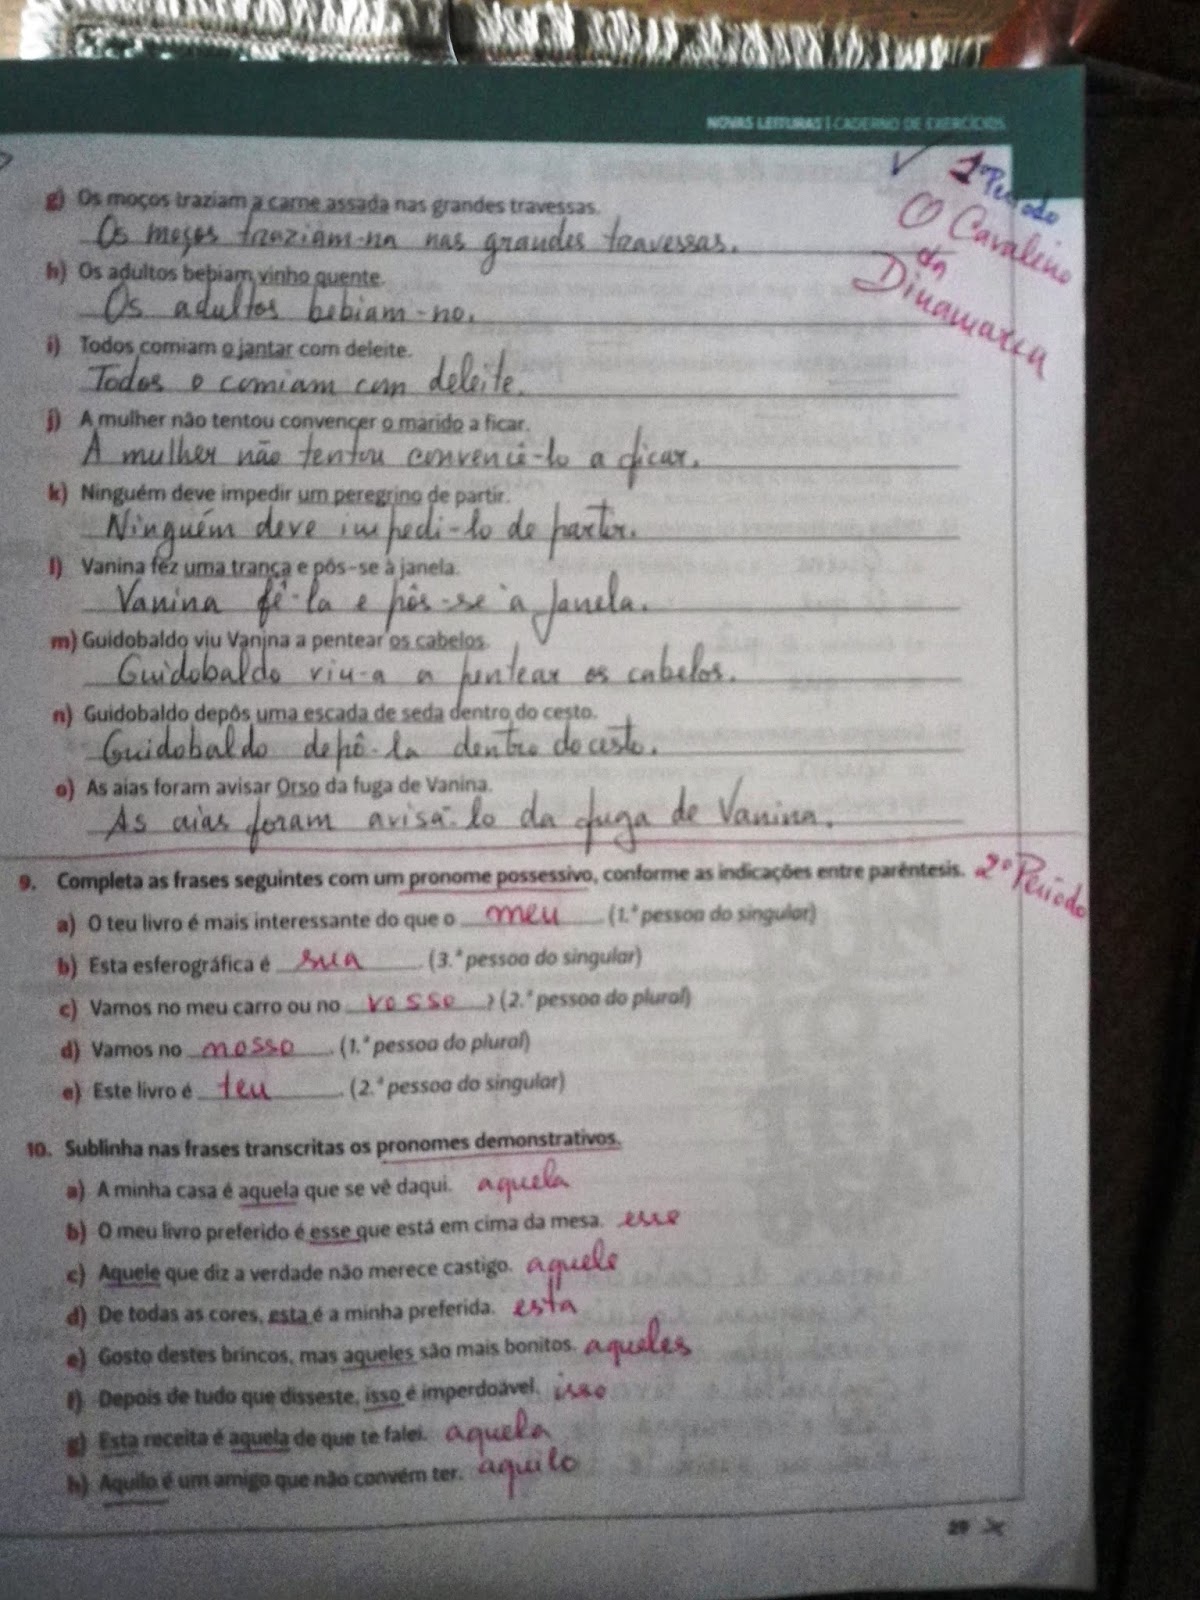 NOVAS LEITURAS | CADERNO DE EXERCÍCIOS
1º Período
O Cavaleiro
da
Dinamarca
g) Os moços traziam a carne assada nas grandes travessas.
Os moços traziam-na nas grandes travessas.
h) Os adultos bebiam vinho quente.
Os adultos bebiam-no.
i) Todos comiam o jantar com deleite.
Todos o comiam com deleite.
j) A mulher não tentou convencer o marido a ficar.
A mulher não tentou convencê-lo a ficar.
k) Ninguém deve impedir um peregrino de partir.
Ninguém deve impedi-lo de partir.
l) Vanina fez uma trança e pôs-se à janela.
Vanina fê-la e pôs-se à janela.
m) Guidobaldo viu Vanina a pentear os cabelos.
Guidobaldo viu-a a pentear os cabelos.
n) Guidobaldo depôs uma escada de seda dentro do cesto.
Guidobaldo depô-la dentro do cesto.
o) As aias foram avisar Orso da fuga de Vanina.
As aias foram avisá-lo da fuga de Vanina.
9. Completa as frases seguintes com um pronome possessivo, conforme as indicações entre parêntesis. 2º Período
a) O teu livro é mais interessante do que o meu (1.ª pessoa do singular)
b) Esta esferográfica é sua. (3.ª pessoa do singular)
c) Vamos no meu carro ou no vosso? (2.ª pessoa do plural)
d) Vamos no nosso. (1.ª pessoa do plural)
e) Este livro é teu. (2.ª pessoa do singular)
10. Sublinha nas frases transcritas os pronomes demonstrativos.
a) A minha casa é aquela que se vê daqui. aquela
b) O meu livro preferido é esse que está em cima da mesa. esse
c) Aquele que diz a verdade não merece castigo. aquele
d) De todas as cores, esta é a minha preferida. esta
e) Gosto destes brincos, mas aqueles são mais bonitos. aqueles
f) Depois de tudo que disseste, isso é imperdoável. isso
g) Esta receita é aquela de que te falei. aquela
h) Aquilo é um amigo que não convém ter. aquilo
29